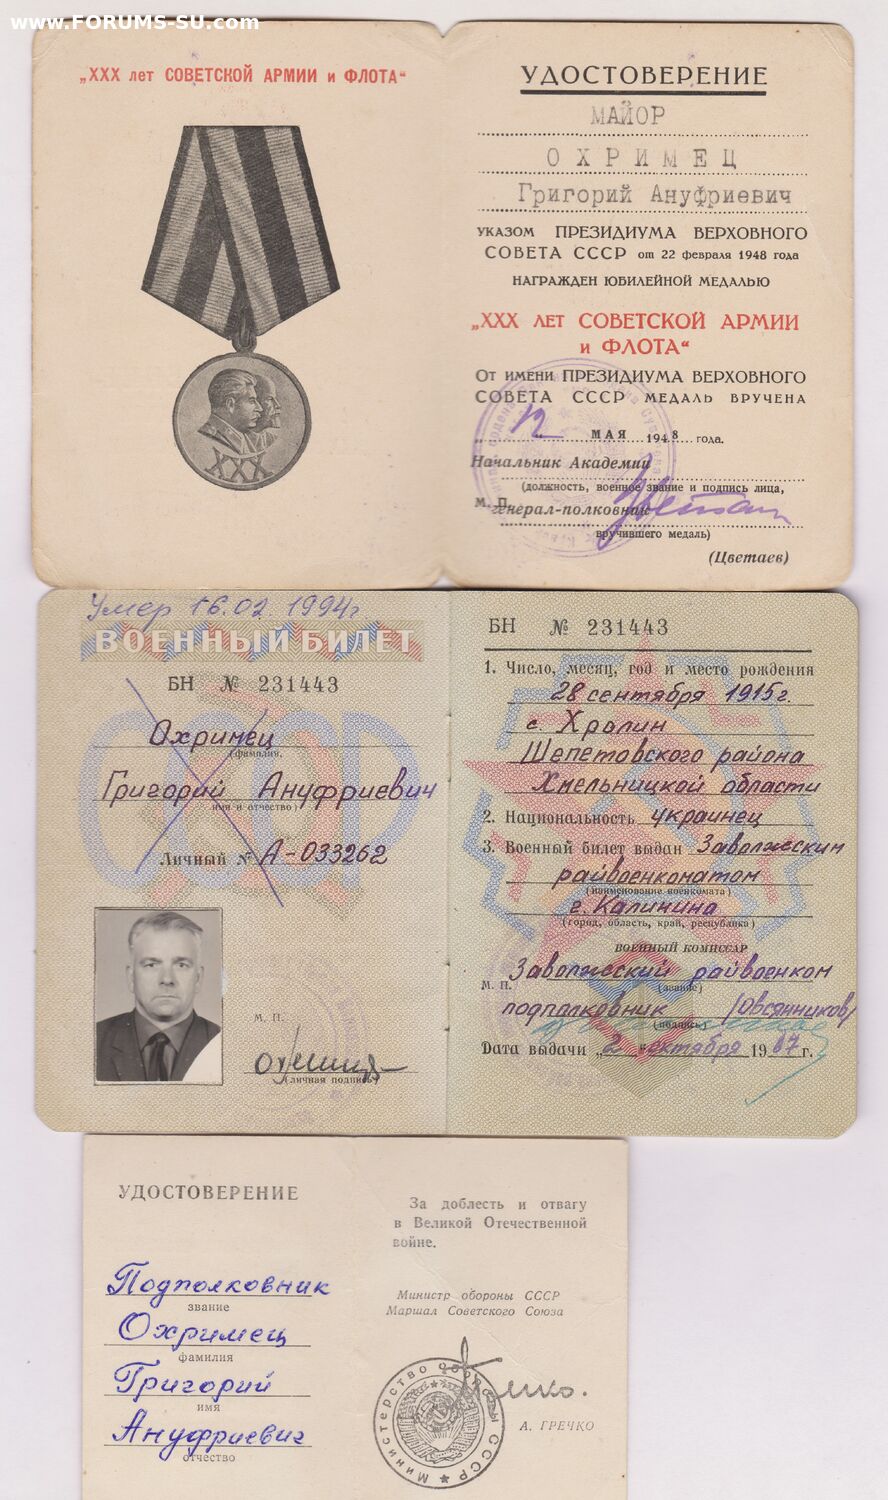 www.FORUMS-SU.com
„XXX лет СОВЕТСКОЙ АРМИИ и ФЛОТА“
УДОСТОВЕРЕНИЕ
МАЙОР
ОХРИМЕЦ
Григорий Ануфриевич
УКАЗОМ ПРЕЗИДИУМА ВЕРХОВНОГО
СОВЕТА СССР от 22 февраля 1948 года
НАГРАЖДЕН ЮБИЛЕЙНОЙ МЕДАЛЬЮ
„XXX ЛЕТ СОВЕТСКОЙ АРМИИ
и ФЛОТА“
ОТ ИМЕНИ ПРЕЗИДИУМА ВЕРХОВНОГО
СОВЕТА СССР МЕДАЛЬ ВРУЧЕНА
„12 МАЯ 1948 года.
Начальник Академии
(должность, военное звание и подпись лица,
М. П.
генерал-полковник
вручившего медаль)
(Цветаев)
XXX
Умер 16.02.1994г.
ВОЕННЫЙ БИЛЕТ
БН № 231443
СССР
Охримец
(фамилия,
Григорий Ануфриевич
имя и отчество)
Личный № А-033262
М. П.
(личная подпись)
БН № 231443
1. Число, месяц, год и место рождения
28 сентября 1915г.
с. Хролин
Шепетовского района
Хмельницкой области
2. Национальность украинец
3. Военный билет выдан Заволжским
райвоенкоматом
(наименование военкомата)
г. Калинина
(город, область, край, республика)
ВОЕННЫЙ КОМИССАР
Заволжский райвоенком
М. П.
(звание)
подполковник /Овсянников/
(подпись)
Дата выдачи „2“ октября 1967 г.
УДОСТОВЕРЕНИЕ
Подполковник
звание
Охримец
фамилия
Григорий
имя
Ануфриевич
отчество
За доблесть и отвагу
в Великой Отечественной
войне.
Министр обороны СССР
Маршал Советского Союза
Министерство обороны СССР
А. ГРЕЧКО